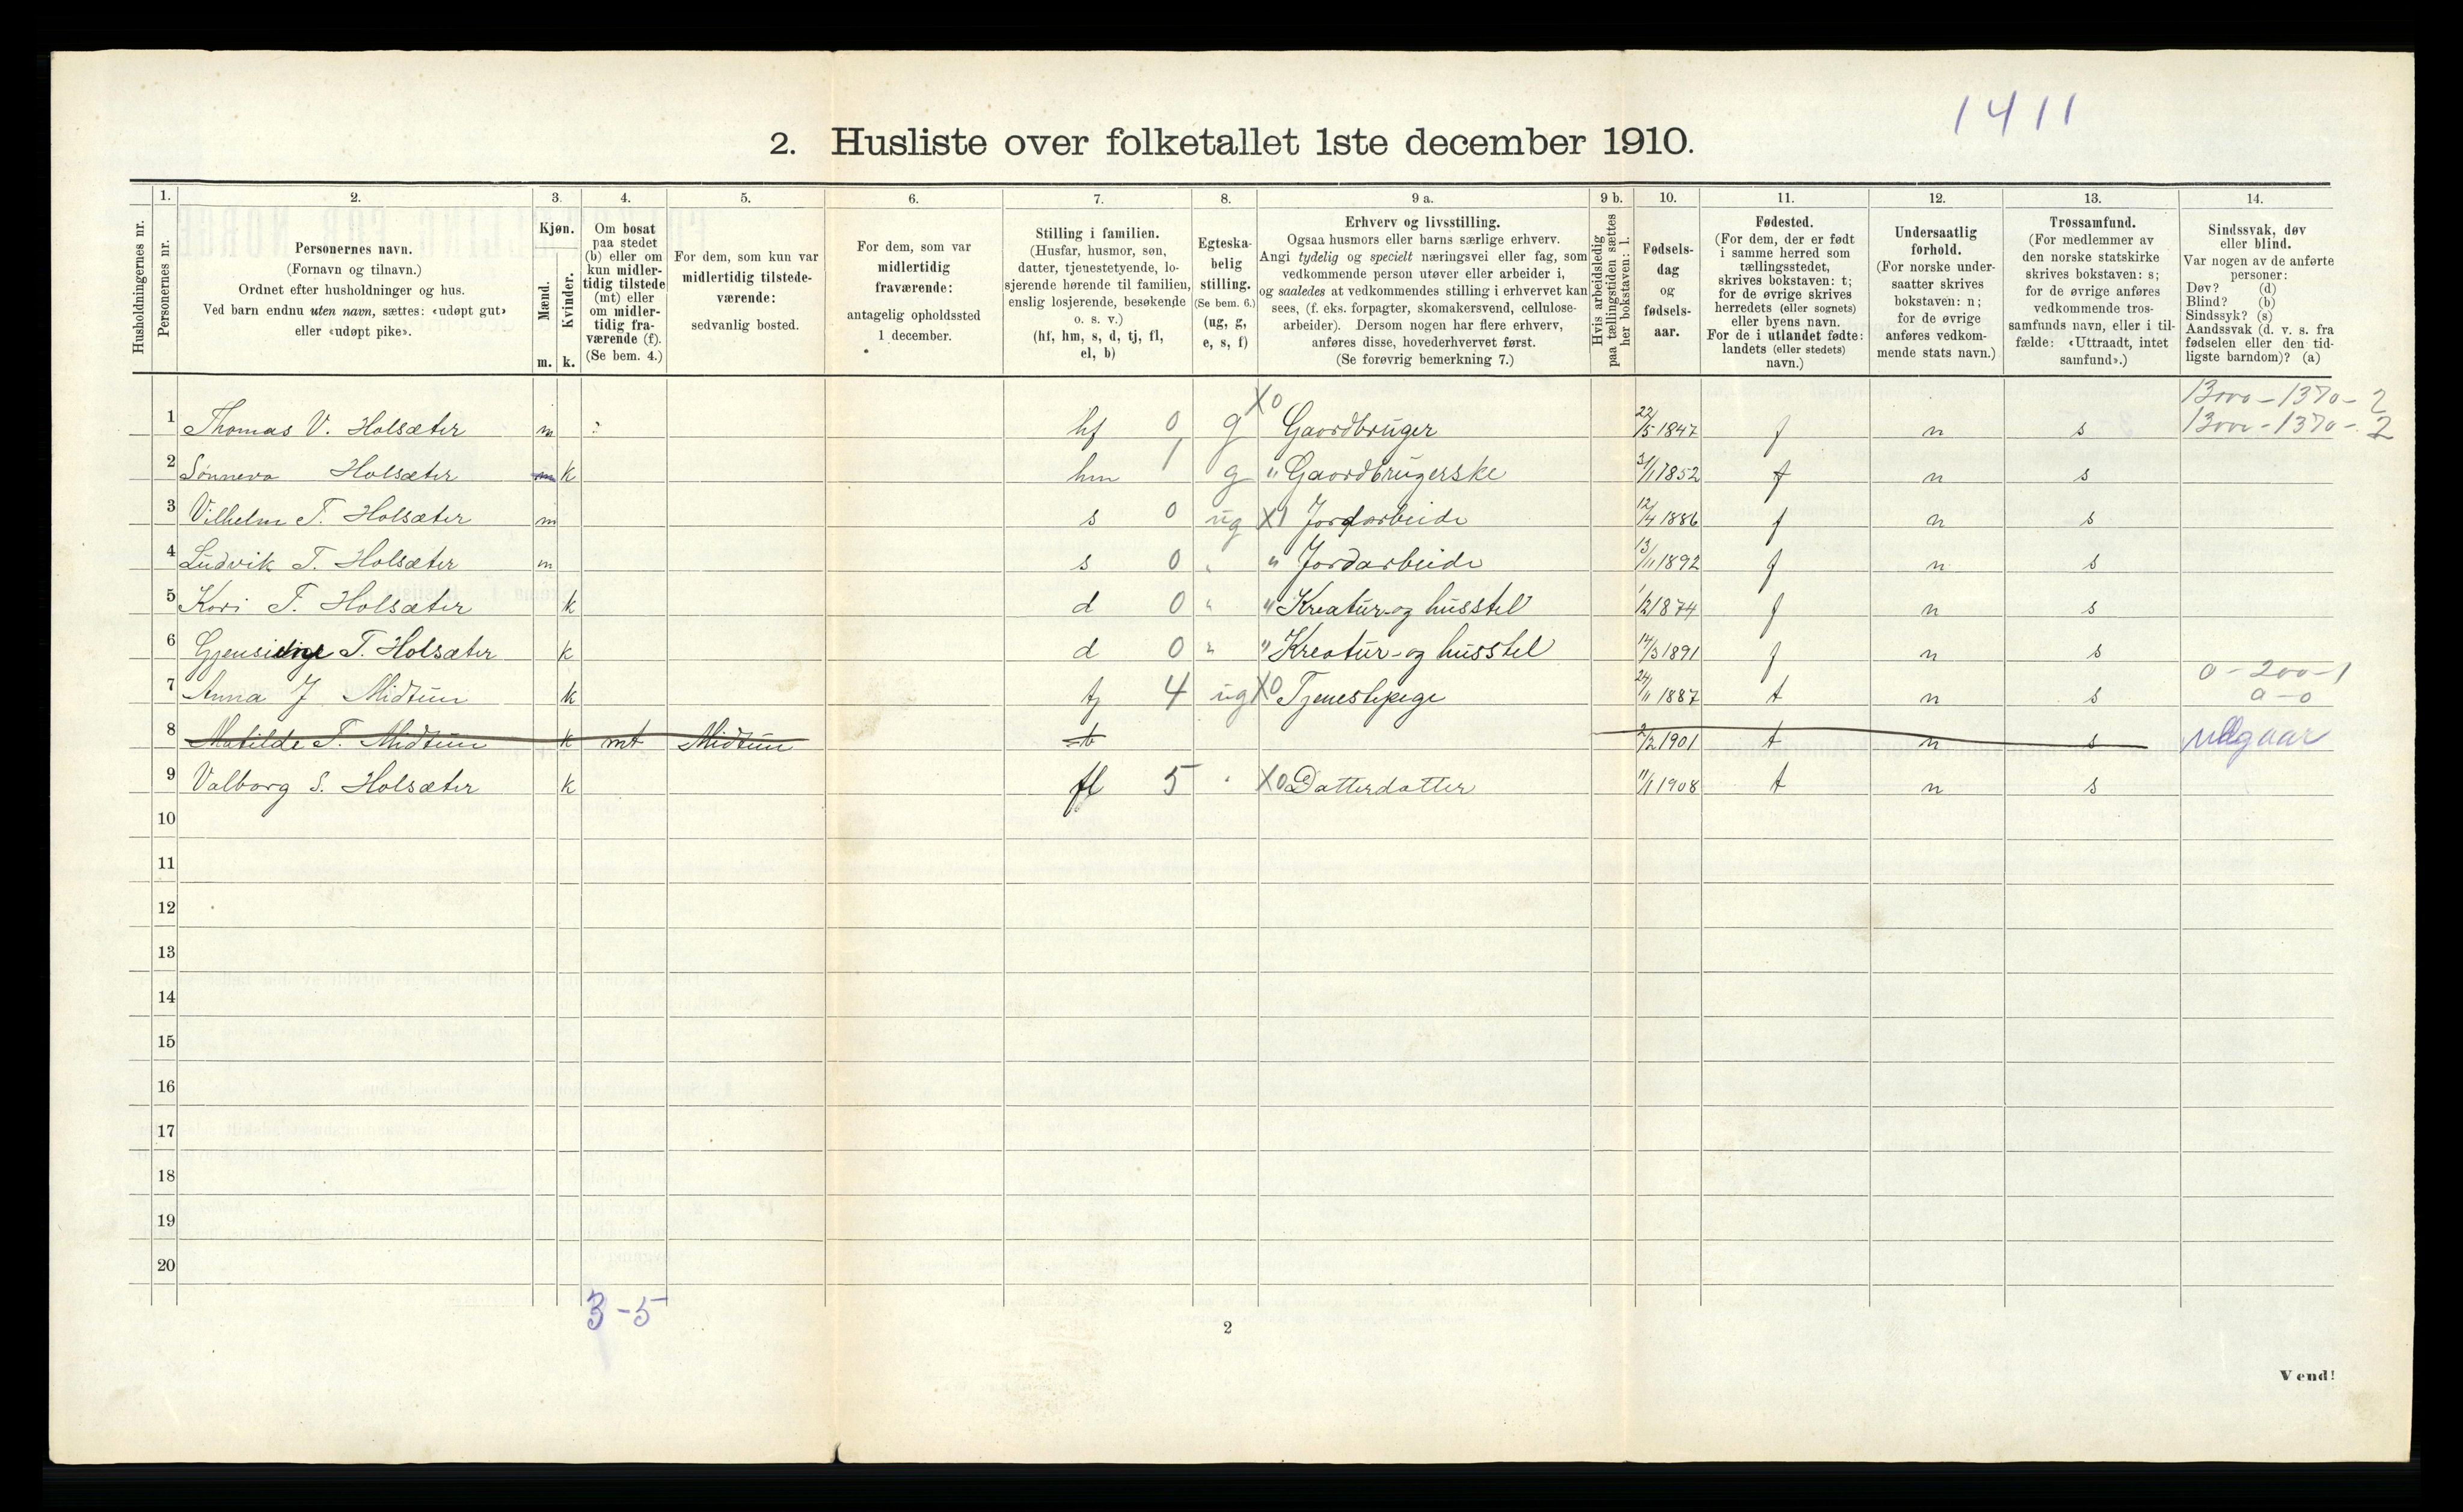 1411
2. Husliste over folketallet 1ste december 1910.
1. 2. 3. 4. 5. 6. 7. 8. 9 a. 9 b. 10. 11. 12. 13. 14.
Husholdningernes nr.
Personernes nr.
Personernes navn.
(Fornavn og tilnavn.)
Ordnet efter husholdninger og hus.
Ved barn endnu uten navn, sættes: «udøpt gut»
eller «udøpt pike».
Kjøn.
Mænd.
Kvinder.
m. k.
Om bosat
paa stedet
(b) eller om
kun midler-
tidig tilstede
(mt) eller
om midler-
tidig fra-
værende (f).
(Se bem. 4.)
For dem, som kun var
midlertidig tilstede-
værende:
sedvanlig bosted.
For dem, som var
midlertidig
fraværende:
antagelig opholdssted
1 december.
Stilling i familien.
(Husfar, husmor, søn,
datter, tjenestetyende, lo-
sjerende hørende til familien,
enslig losjerende, besøkende
o. s. v.)
(hf, hm, s, d, tj, fl,
el, b)
Egteska-
belig
stilling.
(Se bem. 6.)
(ug, g,
e, s, f)
Erhverv og livsstilling.
Ogsaa husmors eller barns særlige erhverv.
Angi tydelig og specielt næringsvei eller fag, som
vedkommende person utøver eller arbeider i,
og saaledes at vedkommendes stilling i erhvervet kan
sees, (f. eks. forpagter, skomakersvend, cellulose-
arbeider). Dersom nogen har flere erhverv,
anføres disse, hovederhvervet først.
(Se forøvrig bemerkning 7.)
Hvis arbeidsledig
paa tællingstiden sættes
her bokstaven: l.
Fødsels-
dag
og
fødsels-
aar.
Fødested.
(For dem, der er født
i samme herred som
tællingsstedet,
skrives bokstaven: t;
for de øvrige skrives
herredets (eller sognets)
eller byens navn.
For de i utlandet fødte:
landets (eller stedets)
navn.)
Undersaatlig
forhold.
(For norske under-
saatter skrives
bokstaven: n;
for de øvrige
anføres vedkom-
mende stats navn.)
Trossamfund.
(For medlemmer av
den norske statskirke
skrives bokstaven: s;
for de øvrige anføres
vedkommende tros-
samfunds navn, eller i til-
fælde: «Uttraadt, intet
samfund».)
Sindssvak, døv
eller blind.
Var nogen av de anførte
personer:
Døv? (d)
Blind? (b)
Sindssyk? (s)
Aandssvak (d. v. s. fra
fødselen eller den tid-
ligste barndom)? (a)
1300 - 1370 - 2
1 Thomas V. Holsæter m hf 0 g X0 Gaardbruger 22/5 1847 n s 1300 - 1370 - 2
2 Sønneva Holsæter m k hm 1 g " Gaardbrugerske 3/11 1852 t n s
3 Vilhelm T. Holsæter m s 0 ug X1 Jordarbeide 12/4 1886 n s
4 Ludvik T. Holsæter m s 0 " " Jordarbeide 13/11 1892 n s
5 Kari T. Holsæter k d 0 " " Kreatur- og husstel 1/12 1874 n s
6 T. Holsæter k d 0 " " Kreatur- og husstel 14/3 1891 n s
0 - 200 - 1
7 Anna J Midtun k tj 4 ug X0 Tjenestepige 24/11 1887 t n s 0 - 0
8 Matilde T. Midtun k mt Midtun b 2/2 1901 t n s udgaar
9 Valborg S. Holsæter k fl 5 " X0 Datterdatter 11/1 1908 t n s
10
11
12
13
14
15
16
17
18
19
20
3-5
2
Vend!